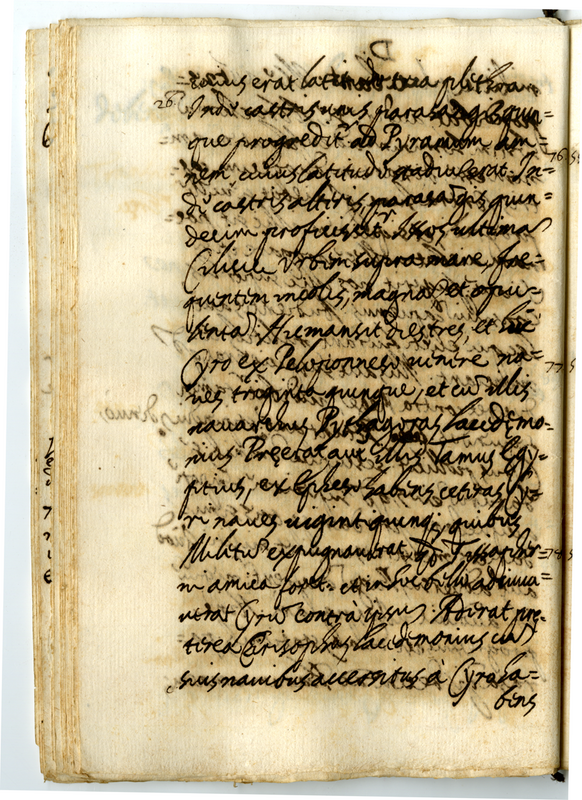 D
=dius erat latitudo tria plethra
26 Inde castris unis parasangis quin=
que progredit ad Pyramum am= 76
nem cuius latitudo stadiu erat. In=
de castris alteris, parasangis quin=
decim proficiscitr Issos, ultima
Ciliciae Urbem supra mare, fre=
quentem incolis, magna et opu=
lenta. Hic mansit dies tres, et hic
Cyro ex Peloponneso venire na= 77
ves triginta quinque, et cu illis
navarchus Pythagoras Lacedemo=
nius. Preerat aut illis Tamus Egy=
ptius, ex Epheso habens ceteras Cy=
ri naves viginti quinq; quibus
Miletu expugnaverat Tissapher= 78
ni amica foret. et in hoc bello adiuva=
verat Cyru contra ipsu. Aderat pre=
terea Cirisophus Lacedemonius cu
suis navibus accersitus à Cyro ha=
bens